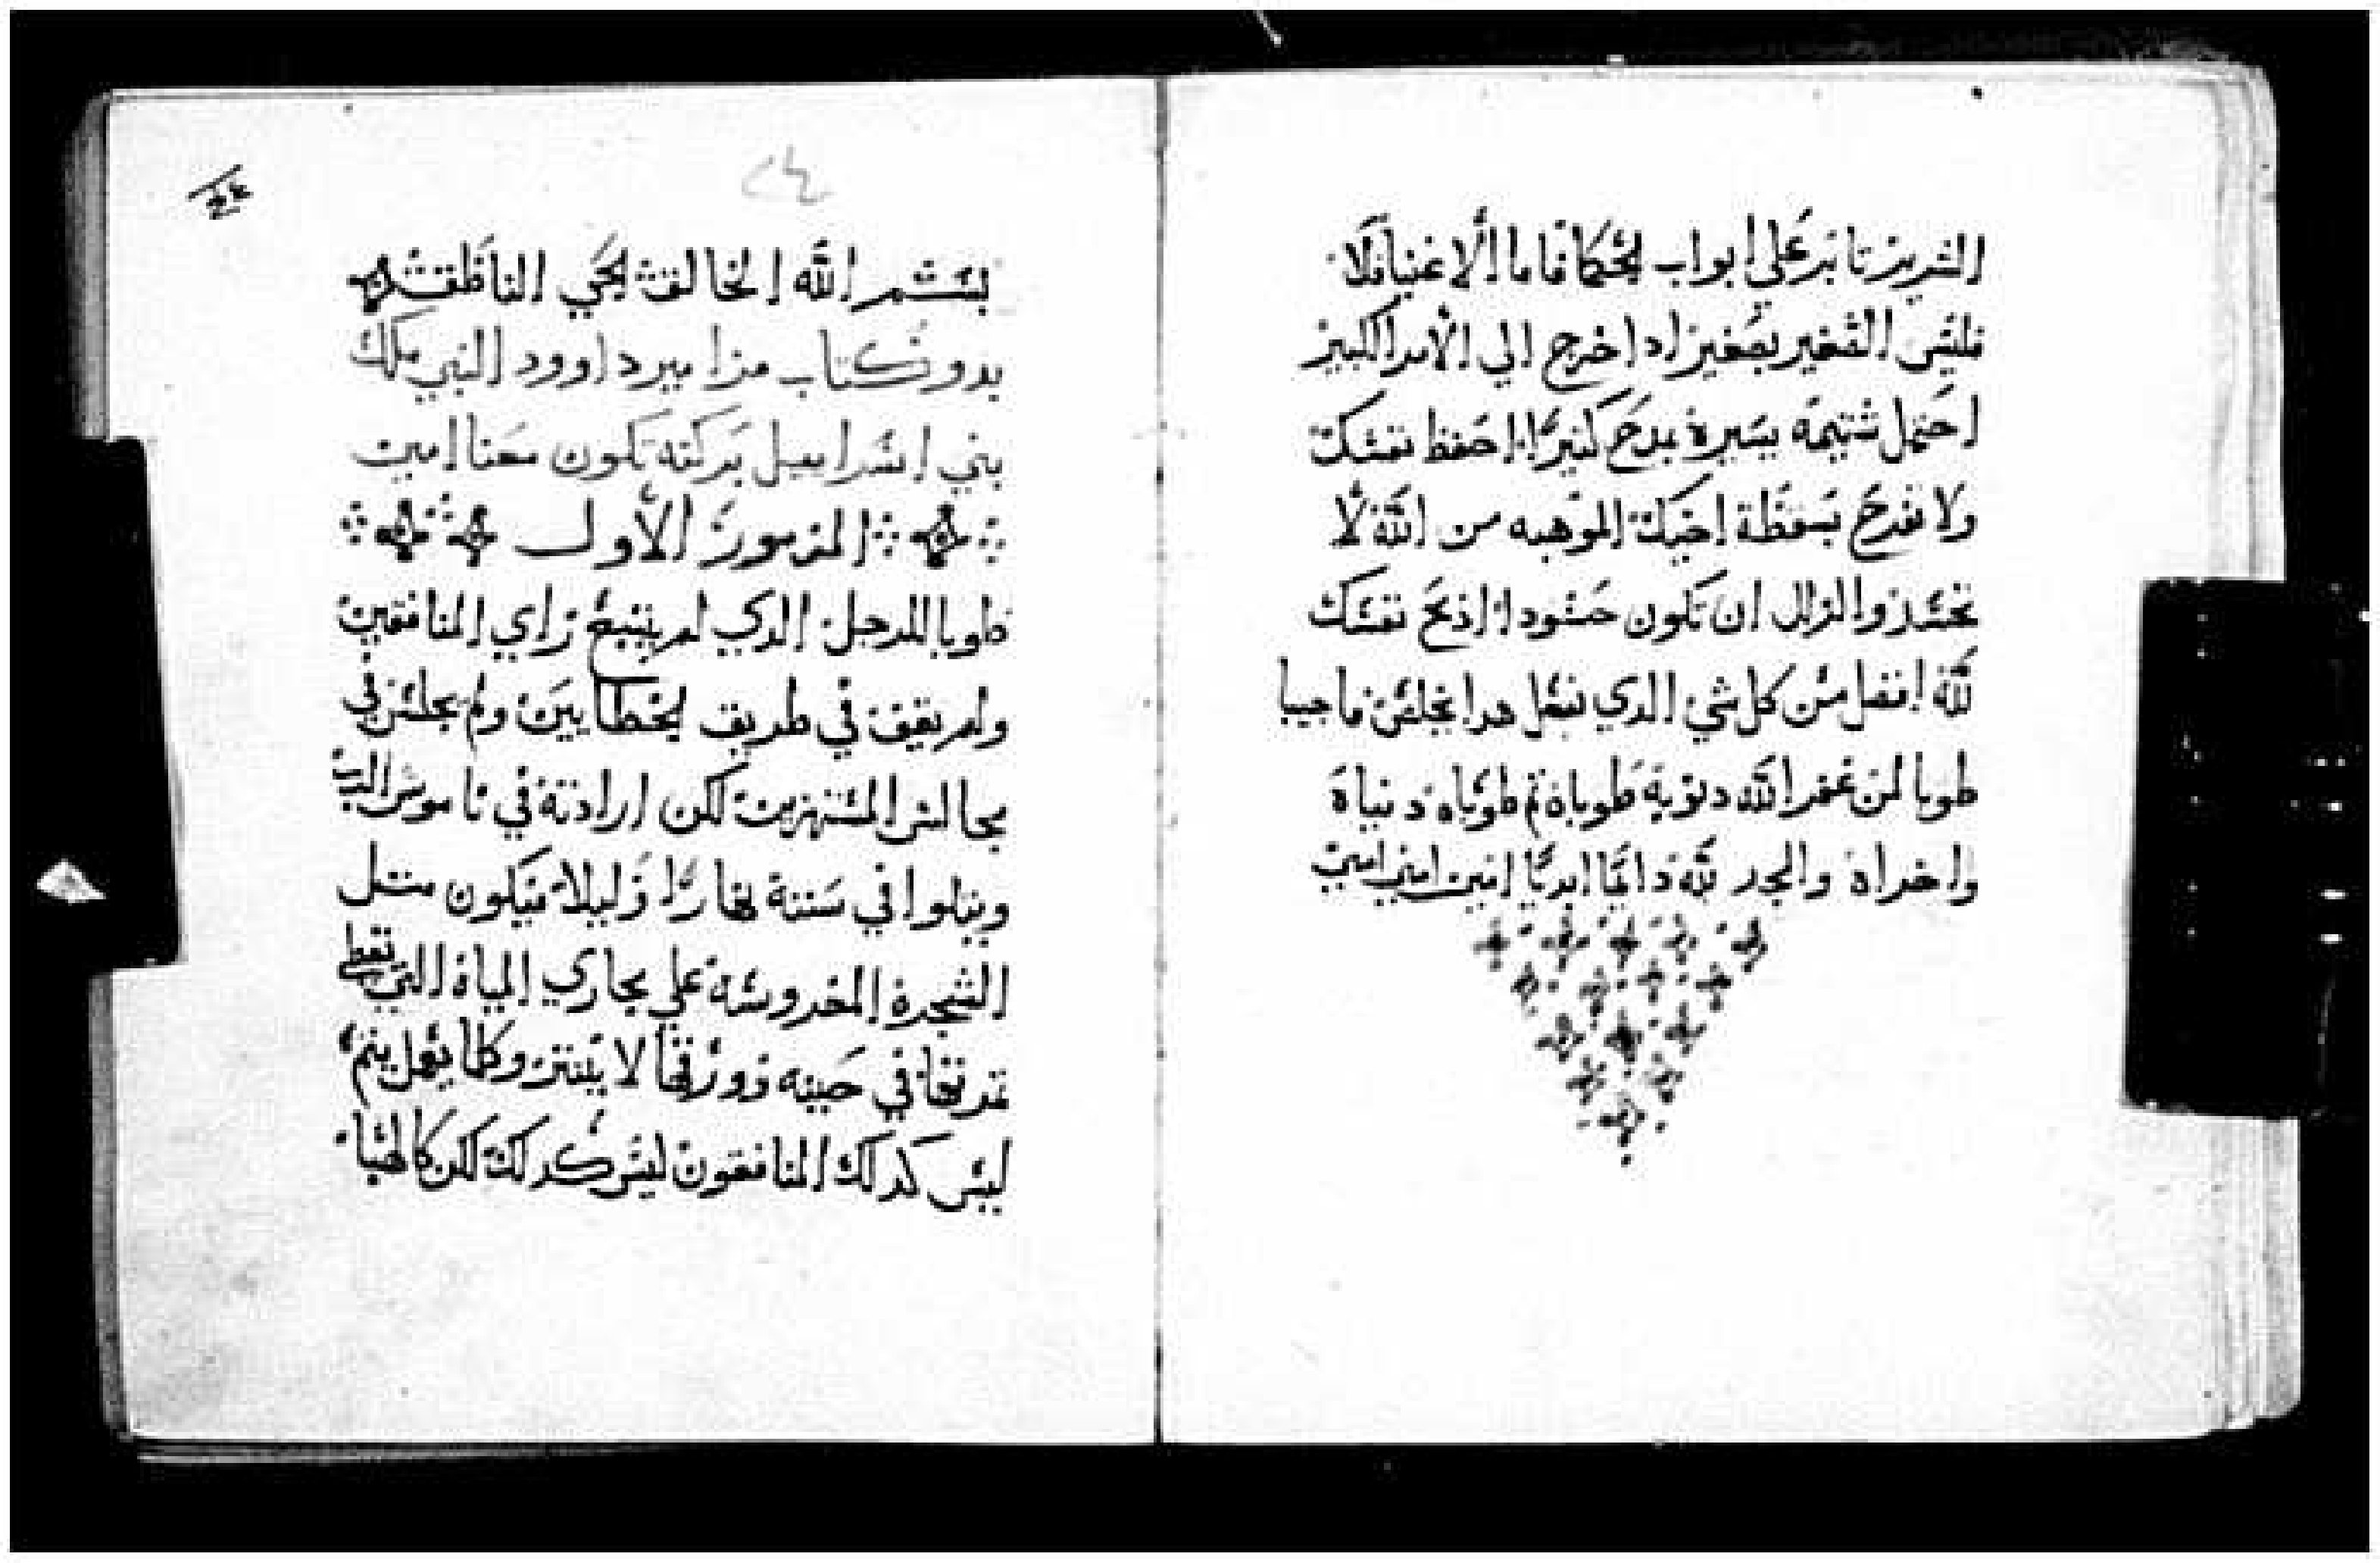 الشرير تابر علي ابواب الحكما فاما الاغنيا فلا
فليس الصغير بصغير اد اخرج الي الامر الكبير
احتمل شتيمه يسيرة بمدح كثيرا احفظ نفسك
ولا تفرح بسقطة اخيك الموهبه من الله لا
تخسر والزلل ان تكون حسودا اذبح نفسك
لله افضل من كل شي الدي تفعل هدا تخلص ناجيا
طوبا لمن غفر الله دنوبة طوباة تم طوباه دنياة
واخراة والمجد لله دايما ابديا امين امين امين
٢٤
بسم الله الخالق الحي الناطق
بدو كتاب مزامير داوود النبي ملك
بني اسراييل بركته تكون معنا امين
المزمور الاول
طوبا للرجل الدي لم يتبع راي المنافقين
ولم يقف في طريق الخطايين ولم يجلس في
مجالس المستهزين لكن ارادتة في ناموس الرب
ويتلوا في سنته نهارا وليلا فيكون متل
الشجرة المغروسة علي مجاري المياة التي تعطي
تمرتها في حينه وورقها لا ينتتر وكلما يعمل يتم
ليس كدلك المنافقون ليس كدلك لكن كالهبا